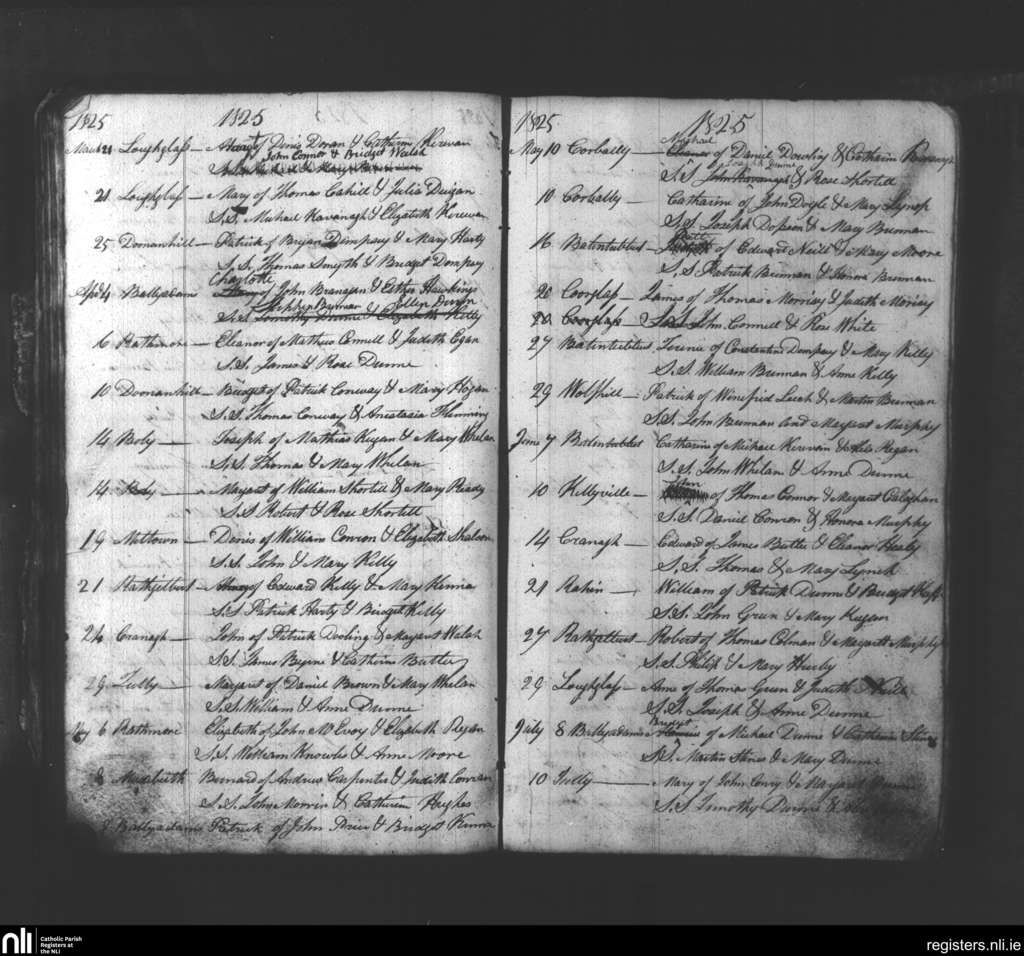 1825
1825
March 21 Loughglass — of Denis Doran & Catherin Kirwan
John Connor & Bridget Walsh
S.S.
21 Loughglass — Mary of Thomas Cahill & Julia Duigan
S.S. Michael Kavanagh & Elizabeth Kirwan
25 Domanhill — Patrick of Bryan Dempsey & Mary Harty
S.S. Thomas Smyth & Bridget Dempsey
Charlotte
April 4 Ballyadams — of John Branagan & Esther Hawkings
Stephen Brennan & Ellen Dunn
S.S. Timothy Dunne & Elizabeth Kelly
6 Rathmore — Eleanor of Mathew Connell & Judith Egan
S.S. James & Rose Dunne
10 Domanhill — Bridget of Patrick Conway & Mary Hogan
S.S. Thomas Conway & Anastasia Flemming
14 Boly — Joseph of Mathias Keegan & Mary Whelan
S.S. Thomas & Mary Whelan
14 Boly — Margaret of William Shortill & Mary Ready
S.S. Robert & Rose Shortill
19 Milltown — Denis of William Conron & Elizabeth
S.S. John & Mary Kelly
21 Rathgilbert — of Edward Kelly & Mary Kenna
S.S. Patrick Harty & Bridget Kelly
24 Cranagh — John of Patrick Dooling & Margaret Walsh
S.S. James Byrne & Catherin Butler
29 Tully — Margaret of Daniel Brown & Mary Whelan
S.S. William & Anne Dunne
May 6 Rathmore Elizabeth of John McEvoy & Elizabeth Regan
S.S. William Knowles & Anne Moore
8 Bernard of Andrew Carpenter & Judith Conran
S.S. John Morrin & Catherin Hughes
8 Ballyadams Patrick of John Price & Bridget Kenna
1825
1825
Michael
May 10 Corbally — Eleanor of Daniel Dowling & Catharin Kavanagh
Joseph Dunne
S.S. John Kavanagh & Rose Shortill
10 Corbally — Catharine of John Doyle & Mary Lynch
S.S. Joseph Dobson & Mary Brennan
16 Batintubbert — of Edward Neill & Mary Moore
S.S. Patrick Brennan & Brennan
20 Coorglass — James of Thomas Morrisy & Judith Morisy
20 Coorglass — S.S. John Connell & Rose White
27 Batintubbert of Constantine Dempsey & Mary Kelly
S.S. William Brennan & Anne Kelly
29 Wolfhill — Patrick of Winefrid Leech & Martin Brennan
S.S. John Brennan and Margaret Murphy
June 7 Batintubbert Catharine of Michael Kirwan & Regan
S.S. John Whelan & Anne Dunne
John
10 Kellyville — of Thomas Connor & Margaret Calaghan
S.S. Daniel Conron & Honora Murphy
14 Cranagh — Edward of James Butler & Eleanor Healy
S.S. Thomas & Mary Lynch
21 Rahin — William of Patrick Dunne & Bridget
S.S. John Green & Mary Keegan
27 Rathgilbert — Robert of Thomas Colman & Margaret Murphy
S.S. Philip & Mary Hurley
29 Loughglass — Anne of Thomas Green & Judith Neill
S.S. Joseph & Anne Dunne
Bridget
July 8 Ballyadams of Michael Dunne & Catharine
S.S. Martin Stines & Mary Dunne
10 Tully — Mary of John Corry & Margaret
S.S. Timothy Dunne &
nli
Catholic Parish
Registers at
the NLI
registers.nli.ie